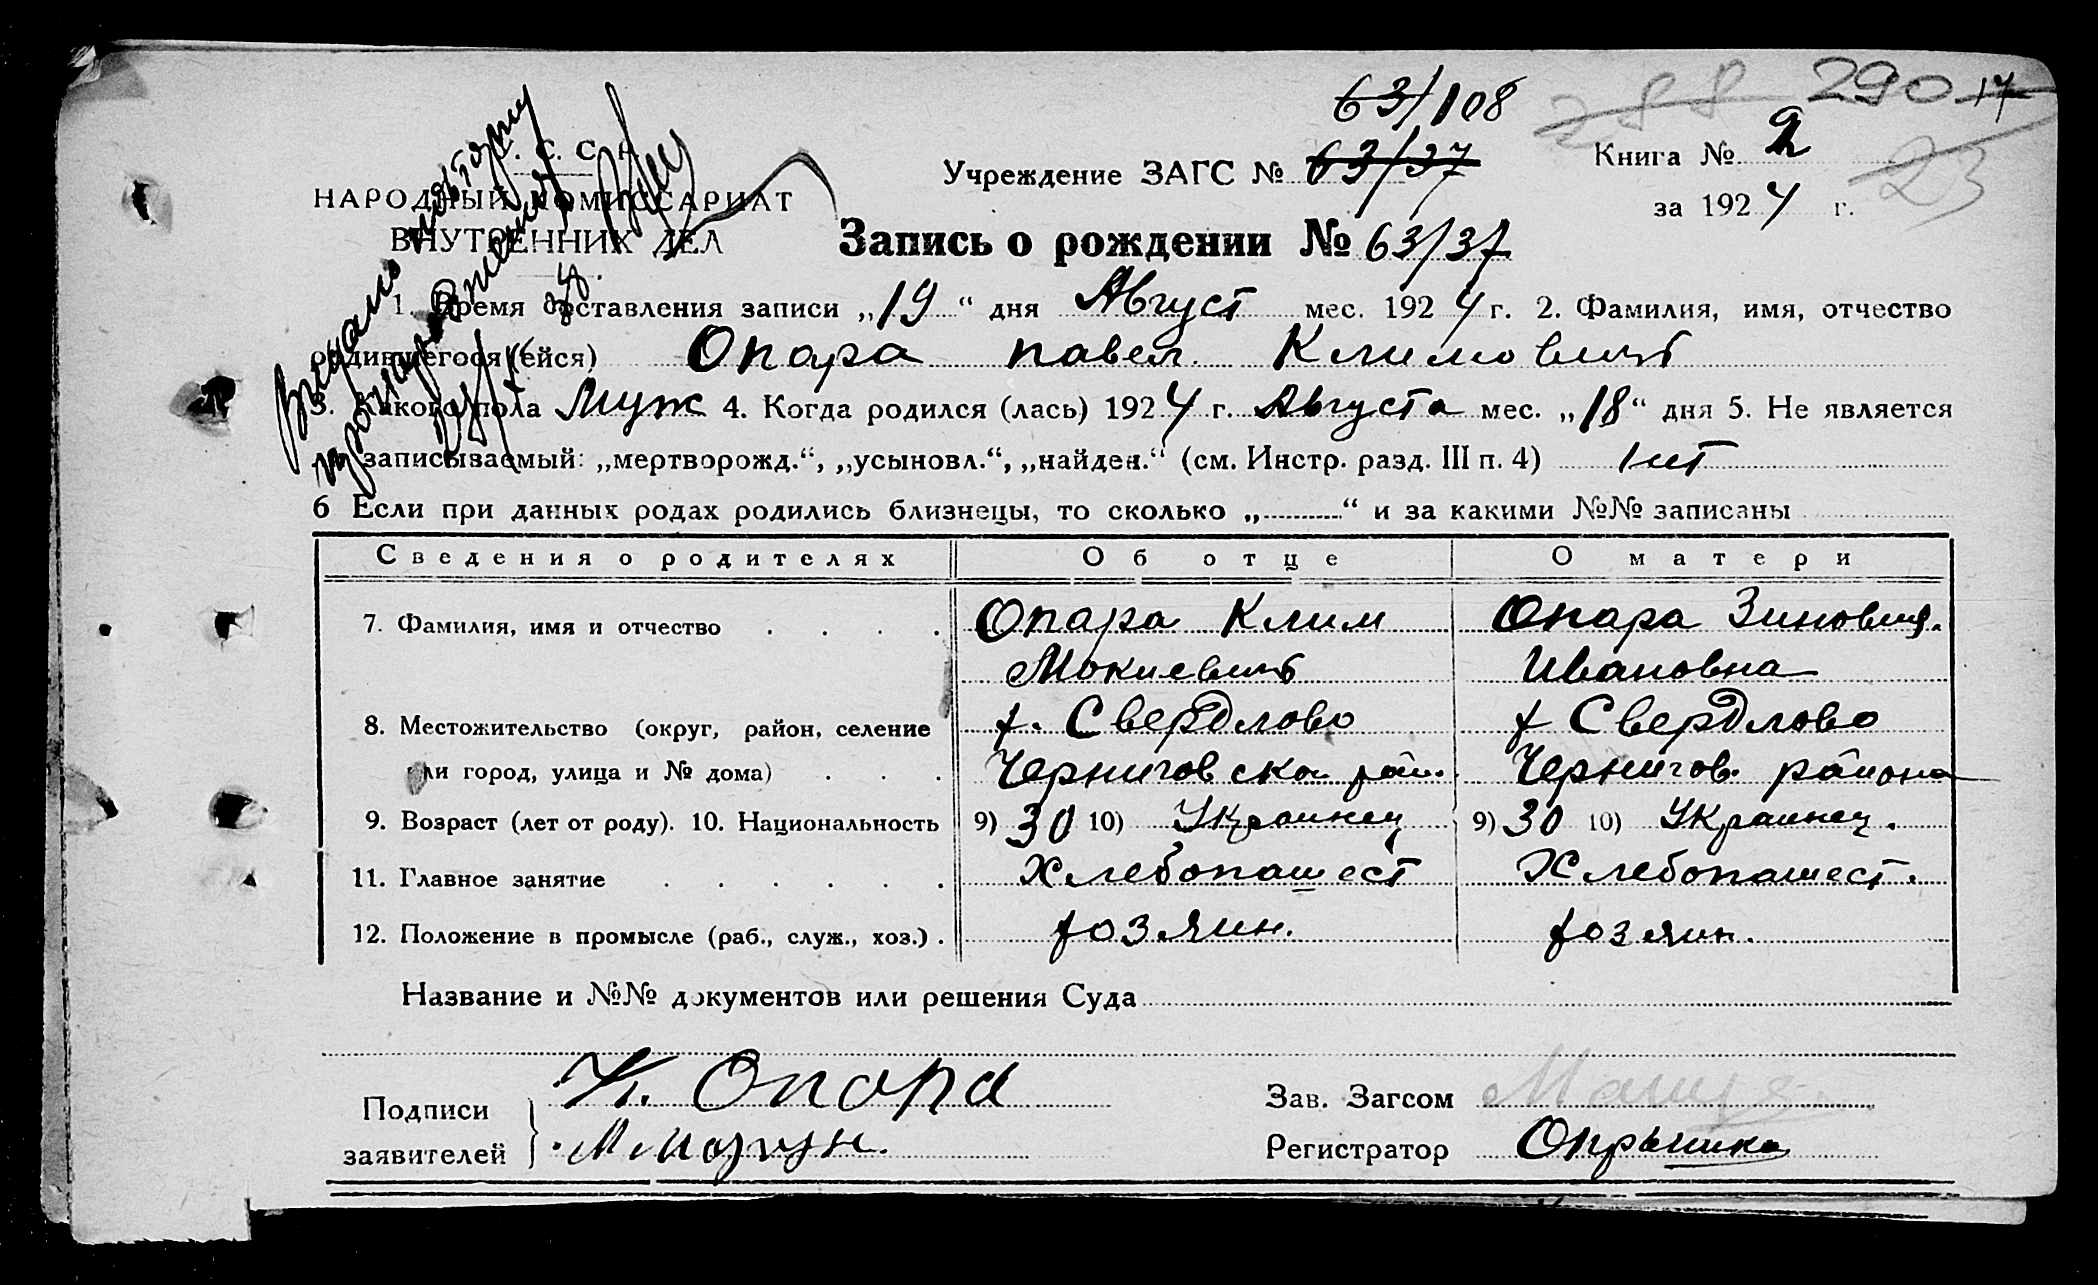 63/108
288 290 17
С. С.
Учреждение ЗАГС № 63/37
Книга № 2
23
НАРОДНЫЙ КОМИССАРИАТ
за 1924 г.
ВНУТРЕННИХ ДЕЛ
Запись о рождении № 63/37
Видано повторну
1. Время составления записи „19“ дня Август мес. 1924 г. 2. Фамилия, имя, отчество
родившегося (ейся) Опара павел Климовичъ
3. Какого пола Муж 4. Когда родился (лась) 1924 г. Августа мес. „18“ дня 5. Не является
записываемый: „мертворожд.“, „усыновл.“, „найден.“ (см. Инстр. разд. III п. 4) нет
6 Если при данных родах родились близнецы, то сколько „ “ и за какими №№ записаны
Сведения о родителях Об отце О матери
7. Фамилия, имя и отчество Опара Клим Опара Зиновия.
Мокиевичъ Ивановна
8. Местожительство (округ, район, селение х. Свердлово х Свердлово
или город, улица и № дома) Черниговской рай. Чернигов. района
9. Возраст (лет от роду). 10. Национальность 9) 30 10) Украинец 9) 30 10) Украинец.
11. Главное занятие Хлебопашест Хлебопашест.
12. Положение в промысле (раб., служ., хоз.) хозяин. хозяин.
Название и №№ документов или решения Суда
Подписи К. Опара Зав. Загсом
заявителей Регистратор Опрышко